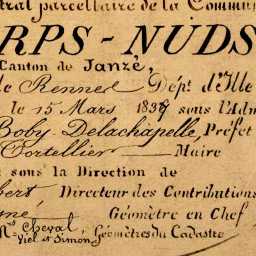 tral parcellaire de la Commun
RPS - NUDS
Canton de Janzé,
de Rennes Dépt. d'Ille
le 15 Mars 1837 sous l'Adm
Boby Delachapelle, Préfet
Cortellier Maire
sous la Direction de
bert Directeur des Contributions
gné, Géomètre en Chef
Mrs Cheval, Viel et Simon, Géomètres du Cadastre